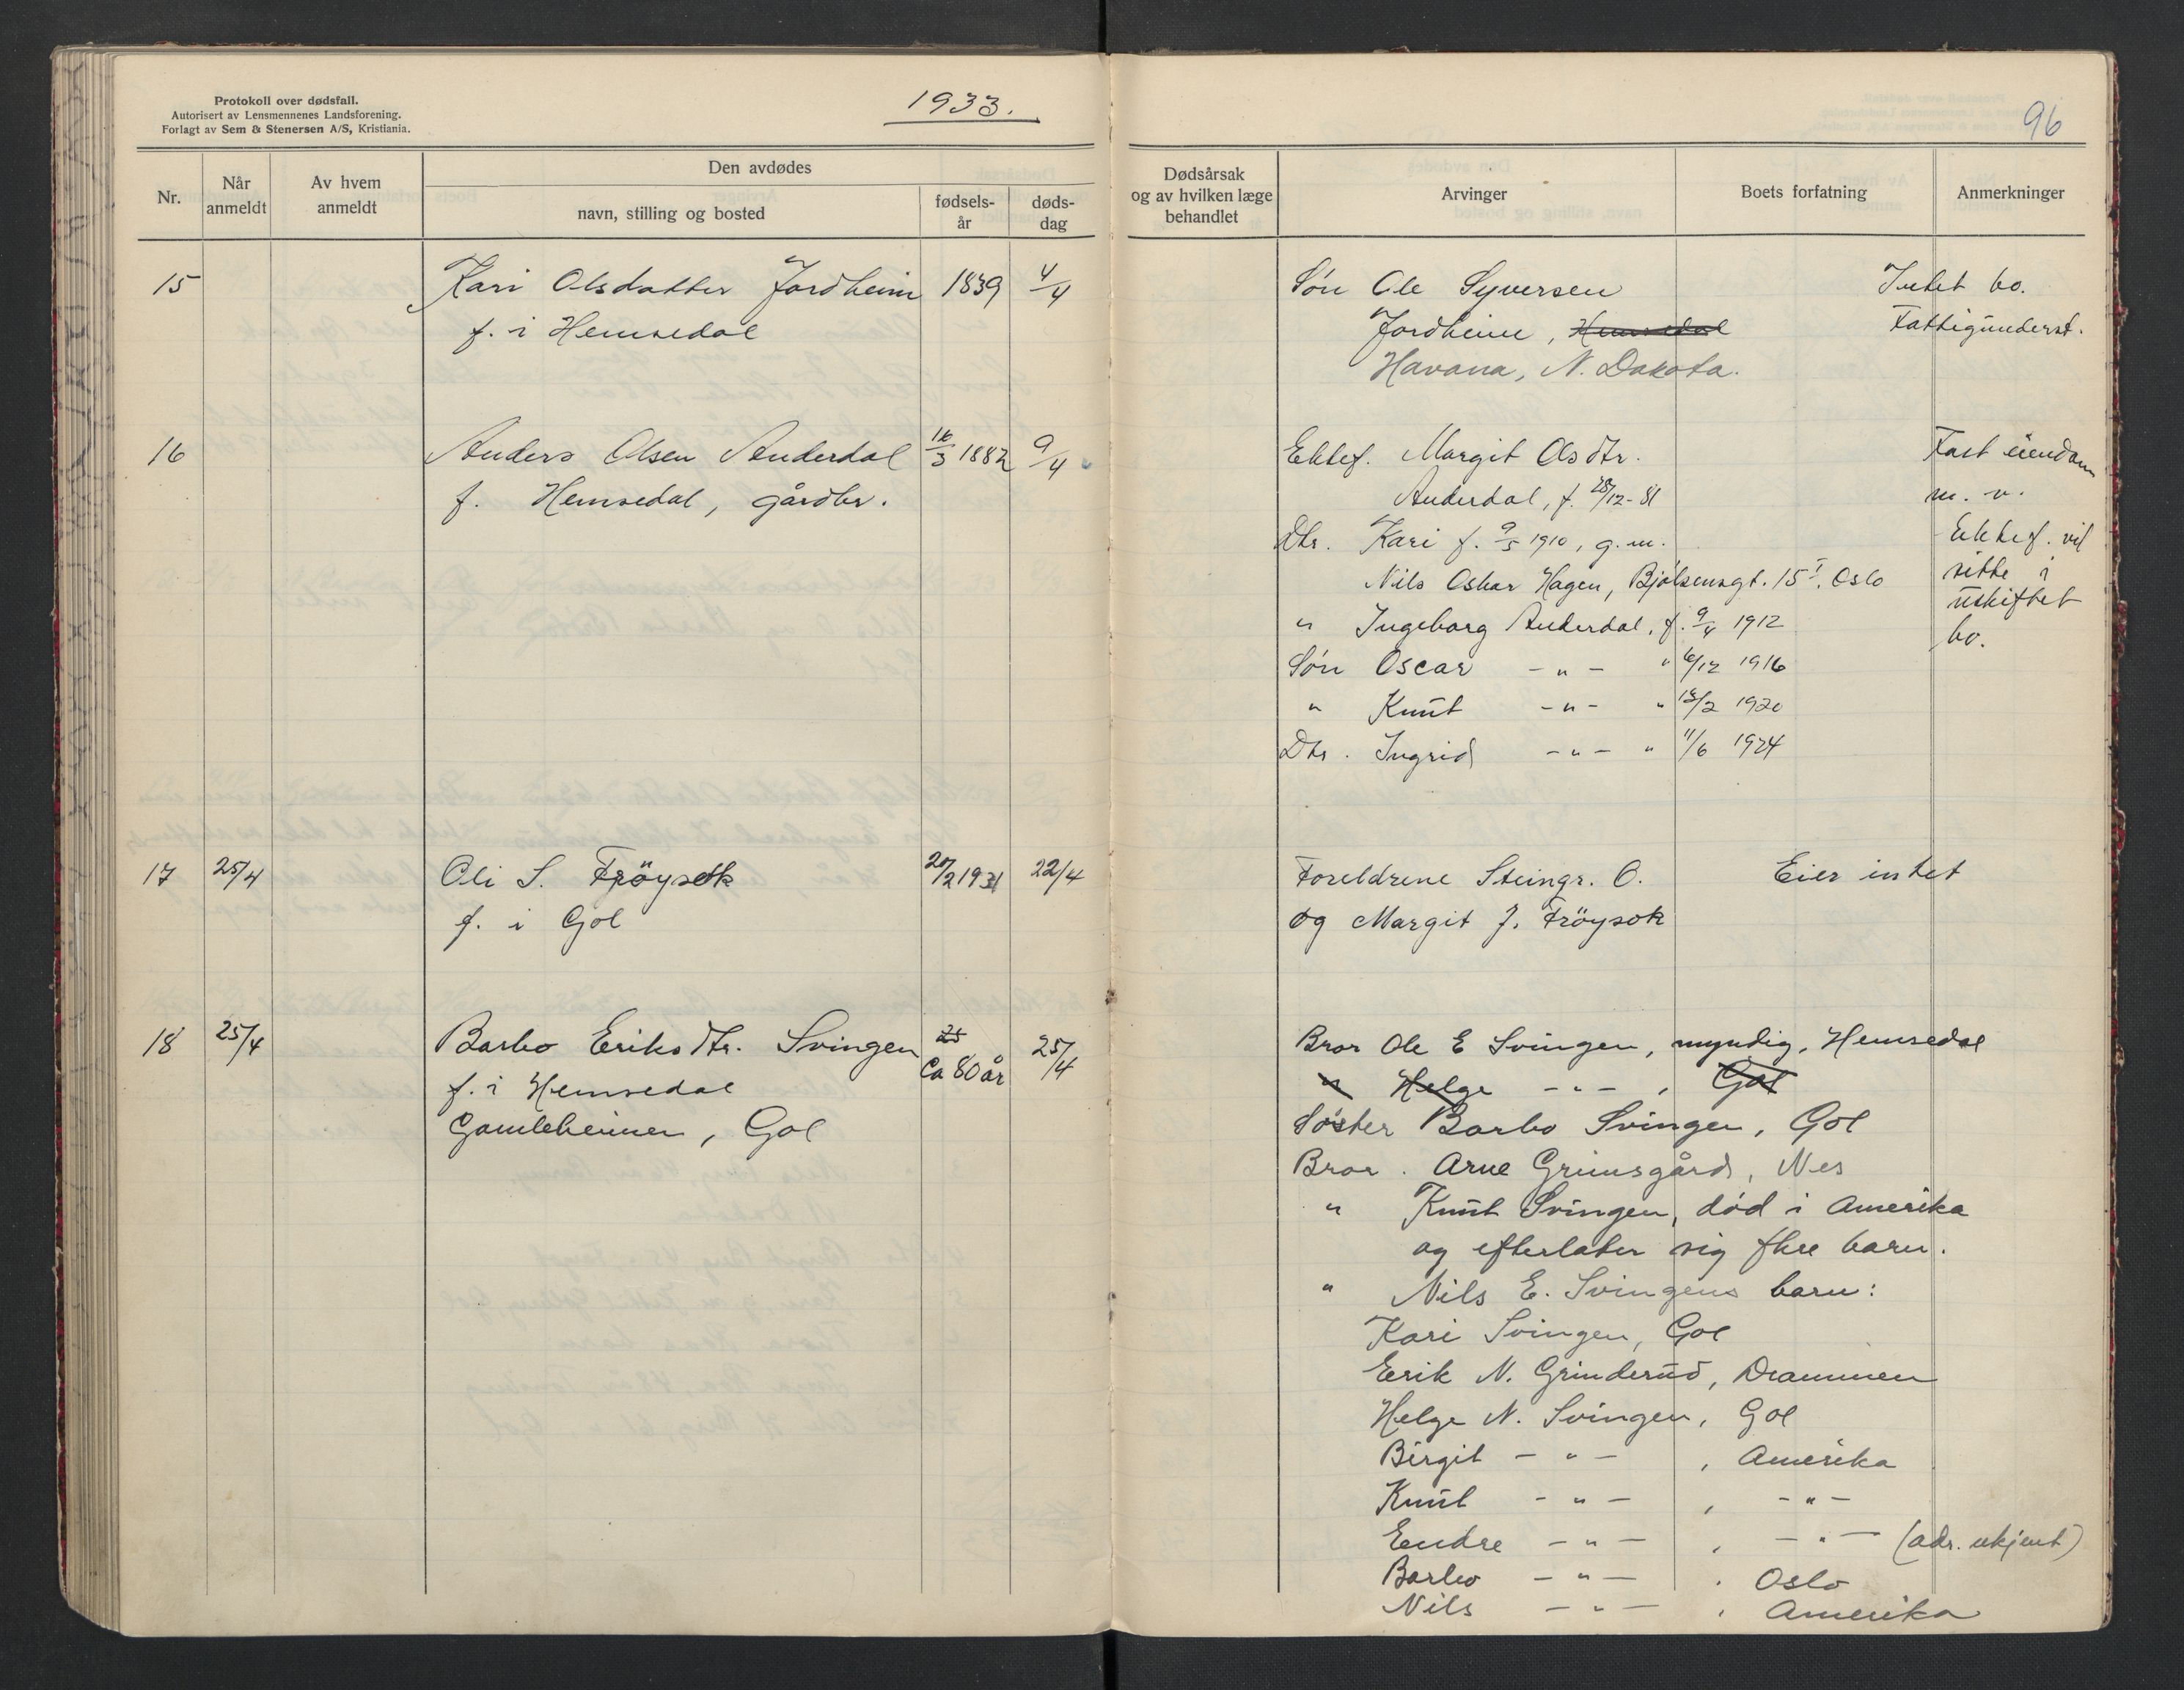 Protokoll over dødsfall.
Autorisert av Lensmennenes Landsforening.
Forlagt av Sem & Stenersen A/S, Kristiania.
1933.
96
Nr.
Når anmeldt
Av hvem anmeldt
Den avdødes
navn, stilling og bosted
fødsels-år
døds-dag
Dødsårsak og av hvilken læge behandlet
Arvinger
Boets forfatning
Anmerkninger
15 Kari Olsdatter Jordheim 1839 4/4
f. i Hemsedal
Søn Ole Syversen
Jordheim, Hemsedal
Havana, N. Dakota.
Intet bo.
Fattigunderst.
16 Anders Olsen Anderdal 16/3 1882 9/4
f. Hemsedal, gårdbr.
Ektef. Margit Olsdtr.
Anderdal, f. 28/12-81
Dtr. Kari f. 9/5 1910, g.m.
Nils Oskar Hagen, Bjølsensgt. 15 I. Oslo
" Ingeborg Anderdal, f. 9/4 1912
Søn Oscar -"- " 6/12 1916
" Knut -"- " 18/2 1920
Dtr. Ingrid -"- " 11/6 1924
Fast eiendom
m. v.
Ektef. vil
sitte i
uskiftet
bo.
17 25/4 Oli S. Frøysok 20/2 1931 22/4
f. i Gol
Foreldrene Steingr. O.
og Margit J. Frøysok
Eier intet
18 25/4 Barbo Eriksdtr. Svingen 25 ca 80 år 25/4
f. i Hemsedal
Gamleheimen, Gol
Bror Ole E Svingen, myndig, Hemsedal
" Helge -"- , Gol
Søster Barbo Svingen, Gol
Bror . Arne Grimsgård, Nes
" Knut Svingen, død i Amerika
og efterlater sig flere barn.
" Nils E. Svingens barn:
Kari Svingen, Gol
Erik N. Grinderud, Drammen
Helge N. Svingen, Gol
Birgit -"- , Amerika
Knut -"- , -"-
Endre -"- , -"- (adr. ukjent)
Barbo -"- , Oslo
Nils -"- , Amerika